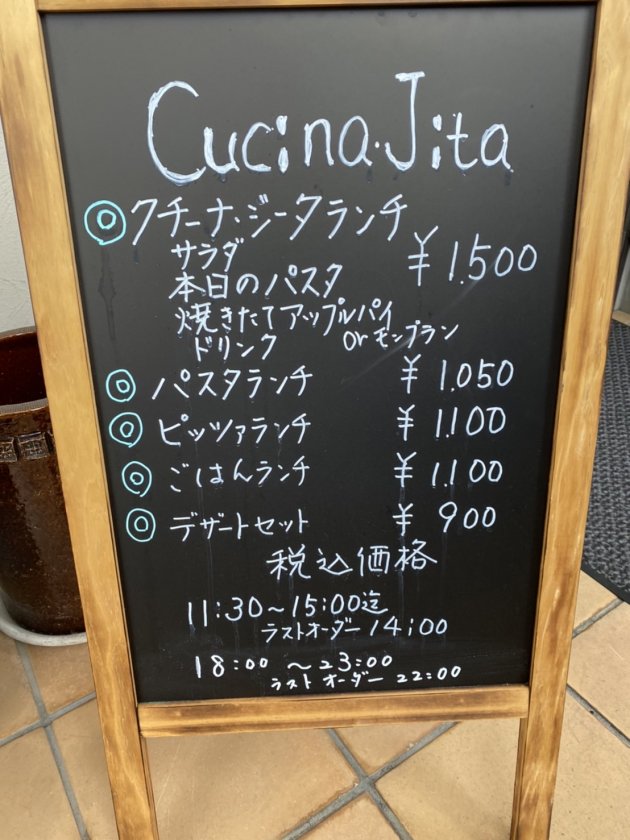 Cucina.Jita
◎クチーナ・ジータランチ
サラダ
¥1.500
本日のパスタ
焼きたてアップルパイ
orモンブラン
ドリンク
◎パスタランチ ¥1.050
◎ピッツァランチ ¥1.100
◎ごはんランチ ¥1.100
◎デザートセット ¥900
税込価格
11:30〜15:00迄
ラストオーダー14:00
18:00 〜23:00
ラストオーダー 22:00